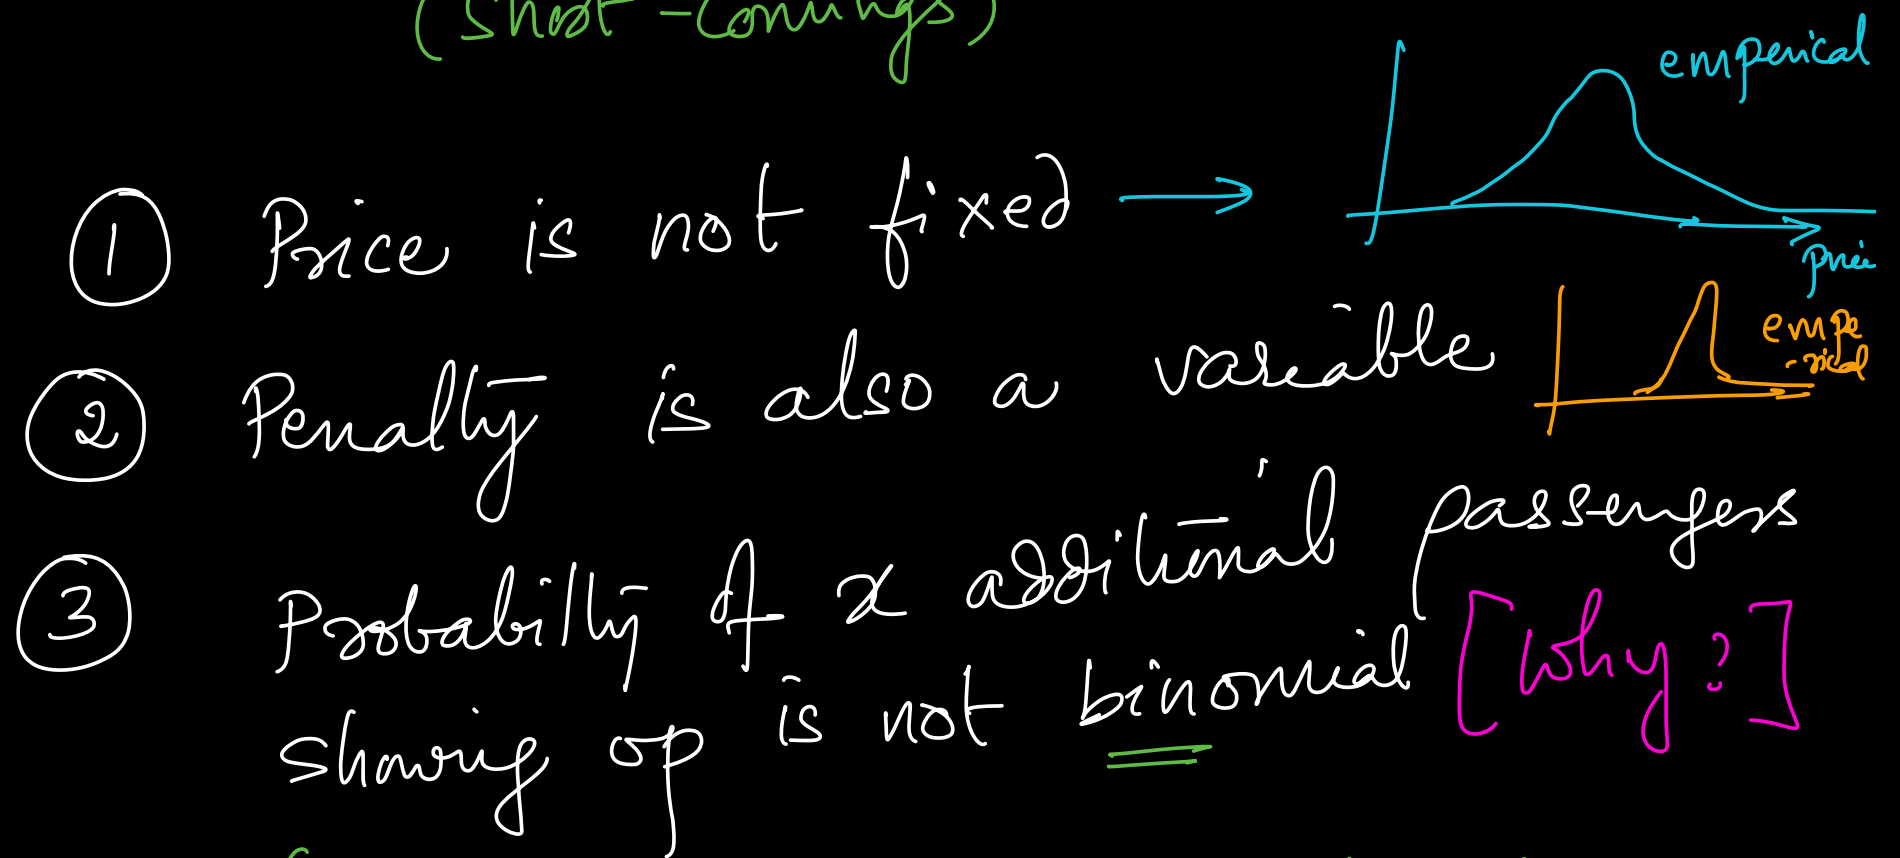 (short-comings)
emperical
① Price is not fixed →
price
② Penalty is also a variable
empe
-rical
③ Probability of x additional passengers
showing up is not binomial [Why?]